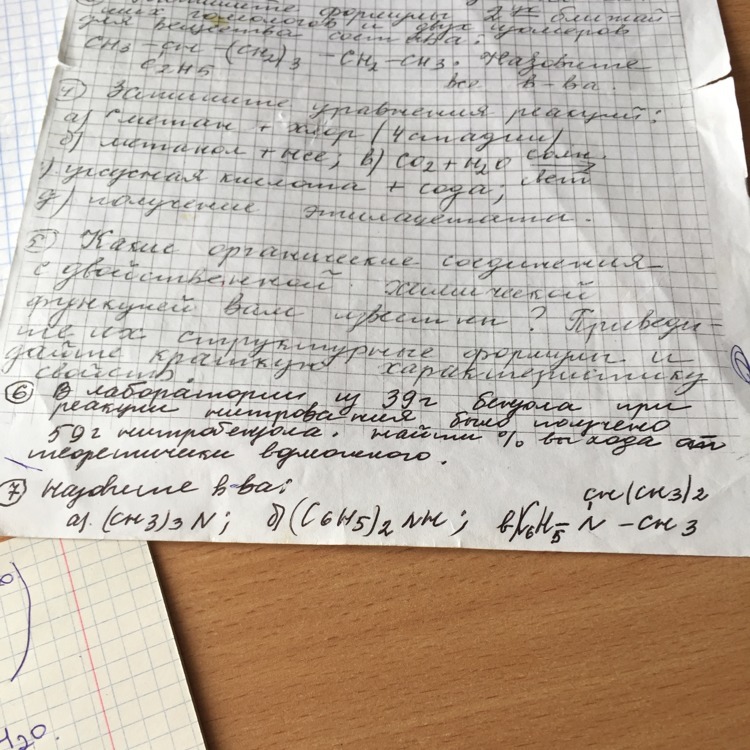 формулы 2ух ближай-
ших гомологов и двух изомеров
для вещества состава:
CH3 - CH - (CH2)3 - CH2 - CH3. Назовите
C2H5 все в-ва.
4) Запишите уравнения реакций:
а) метан + хлор (4 стадии)
б) метанол + HCl; в) CO2 + H2O солн.
свет
г) уксусная кислота + сода;
д) получение этилацетата.
5) Какие органические соединения
с двойственной химической
функцией Вам известны? Приведи-
те их структурные формулы и
дайте краткую характеристику
свойств.
6 В лаборатории из 39г бензола при
реакции нитрования было получено
59г нитробензола. найти % выхода от
теоретически возможного.
7 назовите в-ва:
CH(CH3)2
а). (CH3)3N; б) (C6H5)2NH; в) C6H5 - N - CH3
H2O.